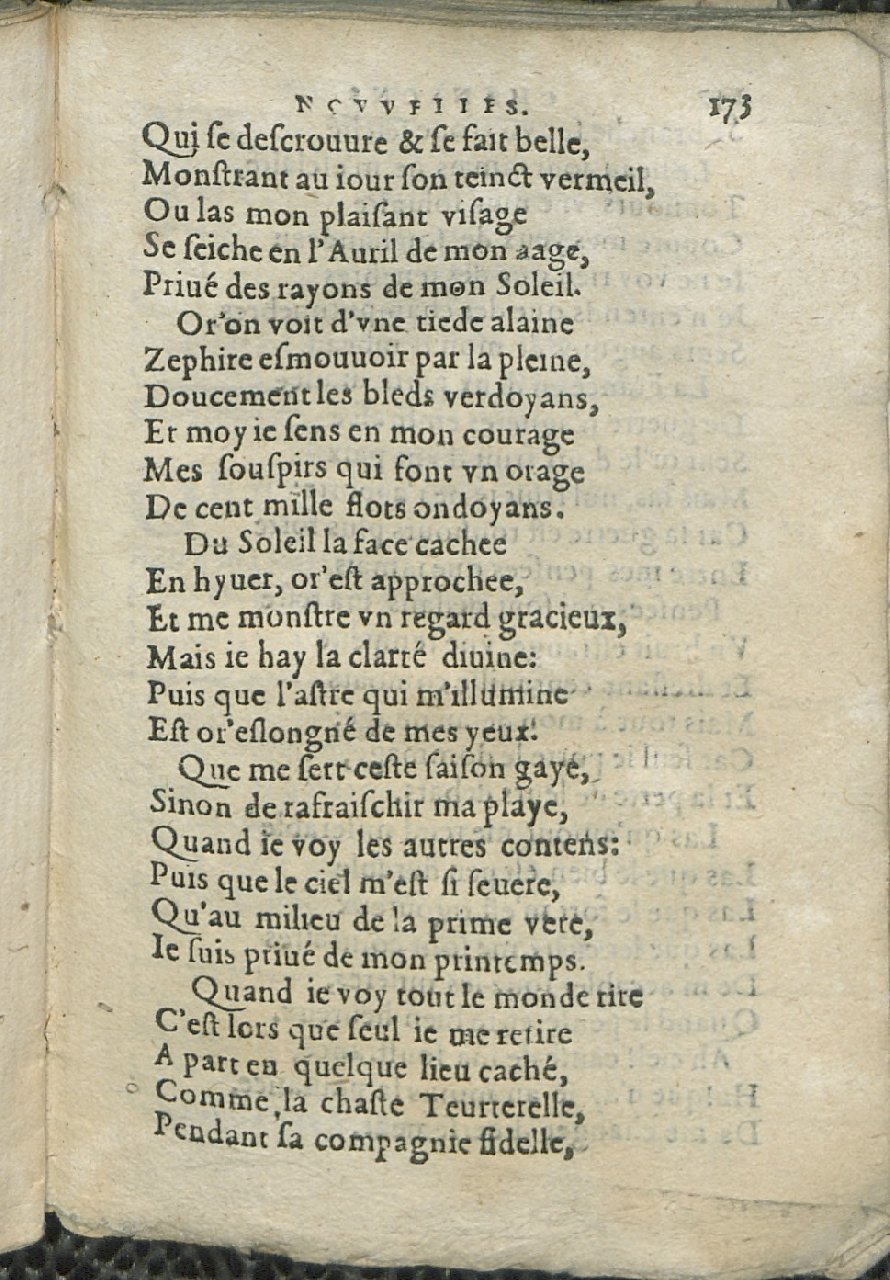 NOVVELLES. 173
Qui ſe deſcrouure & ſe fait belle,
Monſtrant au iour ſon teinct vermeil,
Ou las mon plaiſant viſage
Se ſeiche en l'Auril de mon aage,
Priué des rayons de mon Soleil.
Or'on voit d'vne tiede alaine
Zephire eſmouuoir par la pleine,
Doucement les bleds verdoyans,
Et moy ie ſens en mon courage
Mes ſouſpirs qui font vn orage
De cent mille flots ondoyans.
Du Soleil la face cachee
En hyuer, or'eſt approchee,
Et me monſtre vn regard gracieux,
Mais ie hay la clarté diuine:
Puis que l'aſtre qui m'illumine
Eſt or'eſlongné de mes yeux.
Que me ſert ceſte ſaiſon gaye,
Sinon de rafraiſchir ma playe,
Quand ie voy les autres contens:
Puis que le ciel m'eſt ſi ſeuere,
Qu'au milieu de la prime vere,
Ie ſuis priué de mon printemps.
Quand ie voy tout le monde rire
C'eſt lors que ſeul ie me retire
A part en quelque lieu caché,
Comme la chaſte Teurterelle,
Pendant ſa compagnie fidelle,